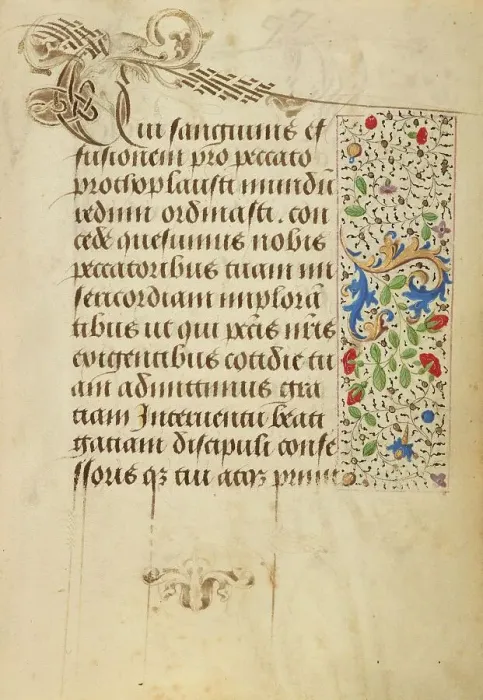 Qui sanguinis ef
fusionem pro peccato
prothoplausti mundū
redimi ordinasti . con
cede quesumus nobis
peccatoribus tuam mi
sericordiam implorā
tibus ut qui pctis nr̄is
exigentibus cotidie tu
am admittimus gra
tiam Interuentu beati
gatiani discipuli confe
ssoris qꝫ tui atqꝫ primi